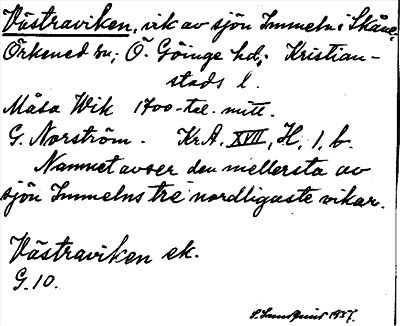 Västraviken, vik av sjön Immeln i Skåne,
Örkened sn; Ö. Göinge hd; Kristian-
stads l.
Måsa Wik 1700-tal. mitt.
G. Norström. KrA. XVII, H, 1, b.
Namnet avser den mellersta av
sjön Immelns tre nordligaste vikar.
Västraviken ek.
G. 10.
1937.